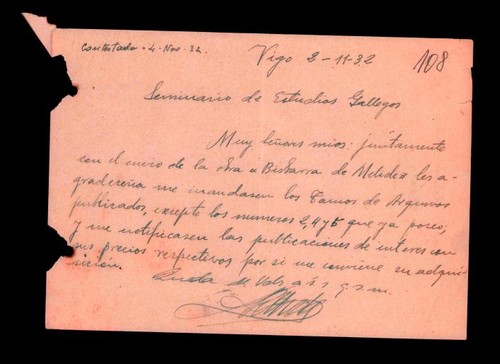 Contestado - 4 - Nov - 32.
Vigo 2-11-32
108
Seminario de Estudios Gallegos
Muy señores mios: juntamente
con el envio de la obra a Bisbarra de Melide les a-
gradeceria me mandasen los Tomos de Arquivos
publicados, excepto los numeros 2, 4 y 5 que ya poseo,
y me notificasen las publicaciones de interes con
sus precios respectivos por si me conviene su adqui-
sición.
Queda de Vds. q.s.m.